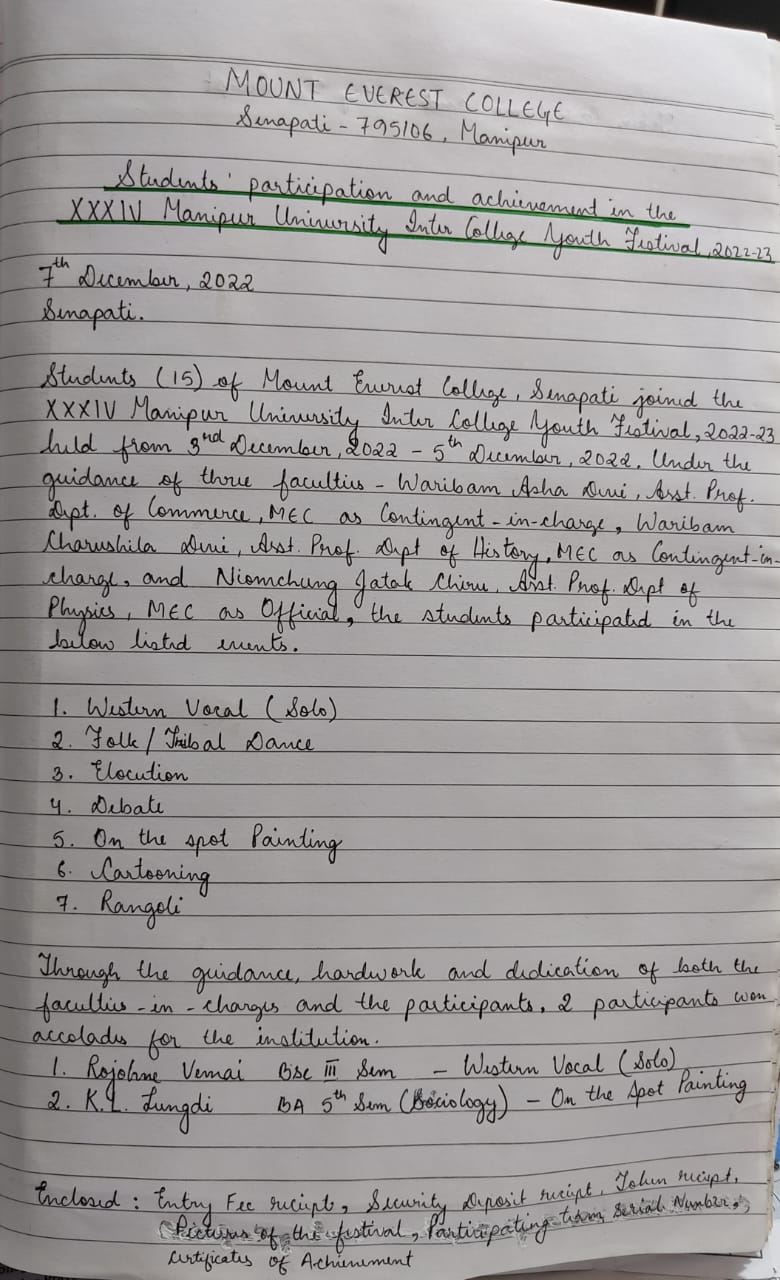 MOUNT EVEREST COLLEGE
Senapati - 795106, Manipur
Students' participation and achievement in the
XXXIV Manipur University Inter College Youth Festival, 2022-23
7th December, 2022
Senapati.
Students (15) of Mount Everest College, Senapati joined the
XXXIV Manipur University Inter College Youth Festival, 2022-23
held from 3rd December, 2022 - 5th December, 2022. Under the
guidance of three faculties - Waribam Asha Devi, Asst. Prof.
Dept. of Commerce, MEC as Contingent-in-charge, Waribam
Charushila Devi, Asst. Prof. Dept of History, MEC as Contingent-in-
charge, and Niomchung Jatak Chiru, Asst. Prof. Dept of
Physics, MEC as Official, the students participated in the
below listed events.
1. Western Vocal (Solo)
2. Folk / Tribal Dance
3. Elocution
4. Debate
5. On the spot Painting
6. Cartooning
7. Rangoli
Through the guidance, hardwork and dedication of both the
faculties-in-charges and the participants, 2 participants won
accolades for the institution.
1. Vemai BSc III Sem - Western Vocal (Solo)
2. K.L. Lungdi BA 5th Sem (Sociology) - On the Spot Painting
Enclosed : Entry Fee reciept, Security Deposit reciept, Token reciept,
Pictures of the festival, Participating team serial Number,
Certificates of Achievement